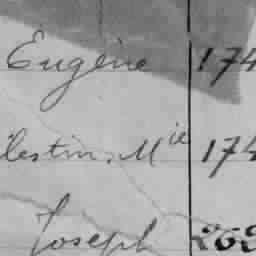 Eugène 174
lestin, Mie 174
Joseph 262